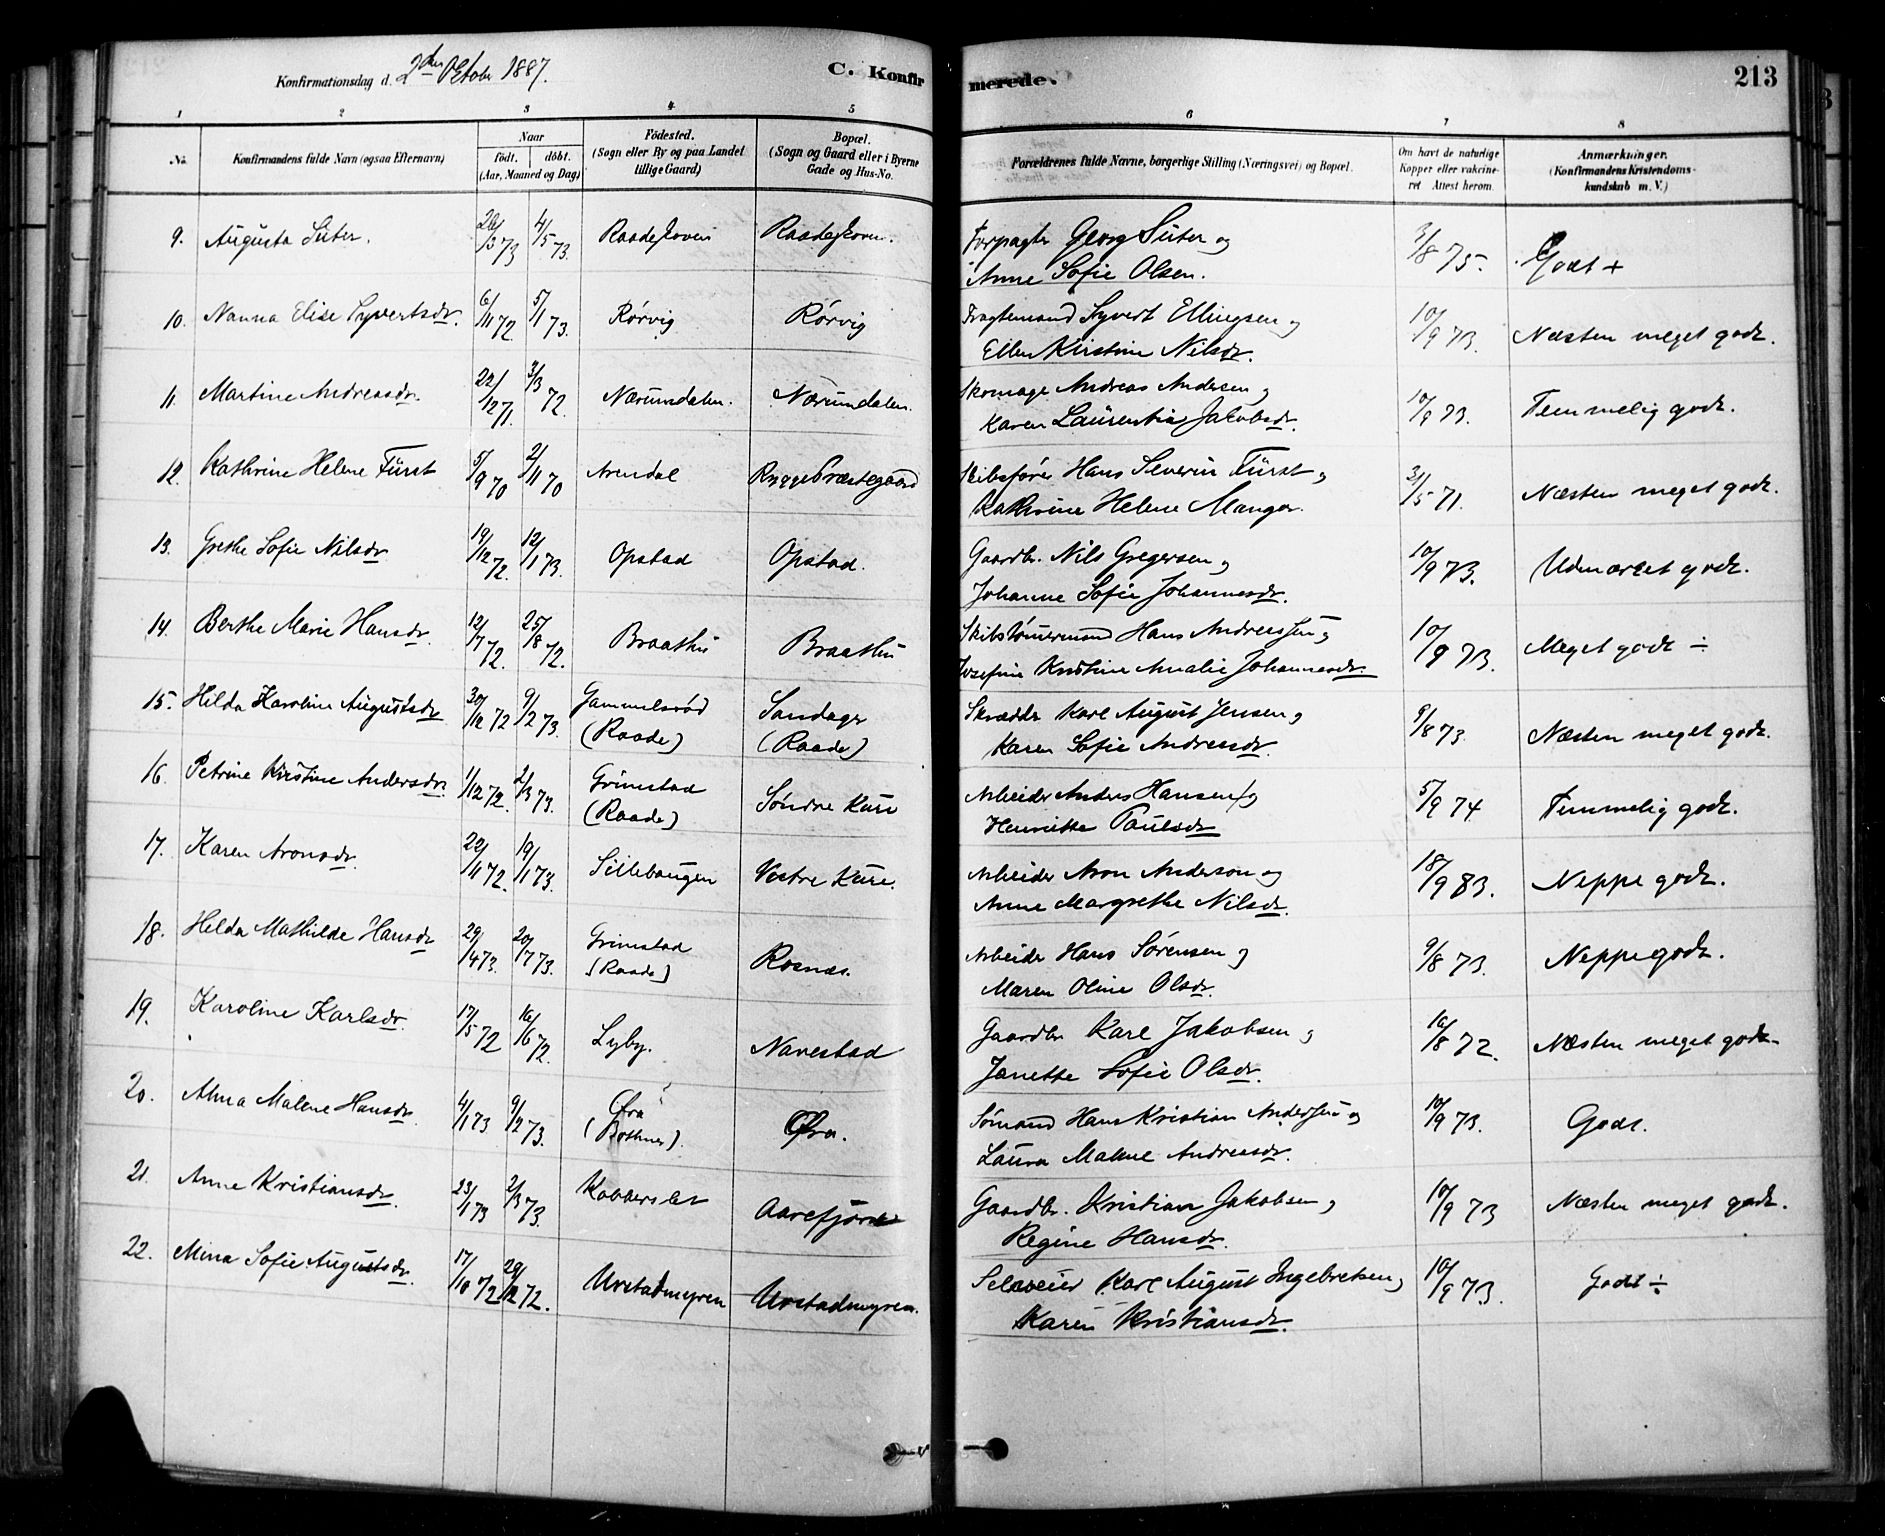 Konfirmationsdag d. 2den Oktober 1887.
C. Konfirmerede.
213
1 2 3 4 5 6 7 8
No. Konfirmandens fulde Navn (ogsaa Efternavn) Naar födt. döbt. (Aar, Maaned og Dag) Födested. (Sogn eller By og paa Landet tillige Gaard) Bopæl. (Sogn og Gaard eller i Byerne Gade og Hus-No. Forældrenes fulde Navne, borgerlige Stilling (Næringsvei) og Bopæl. Om havt de naturlige Kopper eller vakcineret Attest herom. Anmærkninger. (Konfirmandens Kristendomskundskab m. V.)
9. Augusta Süter. 28/3 73 4/5 73. Raadeskoven Raadeskoven. Forpagter Georg Süter og 3/8 75. Godt +
Anne Sofie Olsen.
10. Nanna Elise Syvertsdr. 6/11 72. 5/1 73. Rørvig Rørvig Fragtemand Syvert Ellingsen og 10/9 73. Næsten meget godt.
Ellen Kirstine Nilsdr.
11. Martine Andreasdr. 22/12 71. 3/3 72. Nærumsdalen. Nærumdalen. Skomage Andreas Andersen og 10/9 73. Temmelig godt.
Karen Laurentia Jakobsdr.
12. Kathrine Helene Fürst 5/9 70 2/11 70 Arendal Rygge Præstegaard Skibsfører Hans Severin Fürst og 31/5 71. Næsten meget godt.
Kathrine Helene Manger.
13. Grethe Sofie Nilsdr. 19/12 72. 12/1 73. Opstad Opstad. Gaardbr. Nils Gregersen og 10/9 73. Udmærket godt.
Johanne Sofie Johannesdr.
14. Berthe Marie Hansdr. 12/7 72. 25/8 72. Braathu Braathu Skibstømermand Hans Andreassen og 10/9 73. Meget godt ÷
Josefine Kristine Amalie Johannesdr.
15. Hilda Karoline Augustsdr 30/12 72 9/2 73. Gammelsrød (Raade) Sandager (Raade) Skrædder Karl August Jensen og 9/8 73. Næsten meget godt.
Karen Sofie Andreasdr.
16. Petrine Kirstine Andersdr. 1/12 72. 2/3 73. Grimestad (Raade) Søndre Kure Arbeider Anders Hansen og 5/9 74 Temmelig godt.
Henriette Paulsdr
17. Karen Aronsdr. 22/11 72. 19/1 73. Sillebaugen Vestre Kure. Arbeider Aron Anderson og 18/9 83. Neppe godt.
Anne Margrethe Nilsdr.
18. Helda Mathilde Hansdr 29/4 73. 20/7 73. Grimstad (Raade) Rosnæs. Arbeider Hans Sørensen og 9/8 73. Neppe godt.
Maren Oline Olsdr.
19. Karoline Karlsdr. 17/5 72 16/6 72. Lyby. Navestad Gaardbr Karl Jakobsen og 16/8 72. Næsten meget godt.
Janette Sofie Olsdr.
20. Alma Malene Hansdr. 4/1 73 9/2 73. Øra (Bothner). Øra. Sømand Hans Kristian Andersen og 10/9 73. Godt.
Laura Malene Andreasdr.
21. Anne Kristiansdr. 23/1 73 2/3 73. Kabberslet Aarefjord Gaardbr. Kristian Jakobsen og 10/9 73 Næsten meget godt.
Regine Hansdr.
22. Mina Sofie Augustsdr. 17/10 72 29/12 72. Urstadmyren Urstadmyren. Selveier Karl August Ingebretsen og 10/9 73. Godt ÷
Karen Kristiansdr.